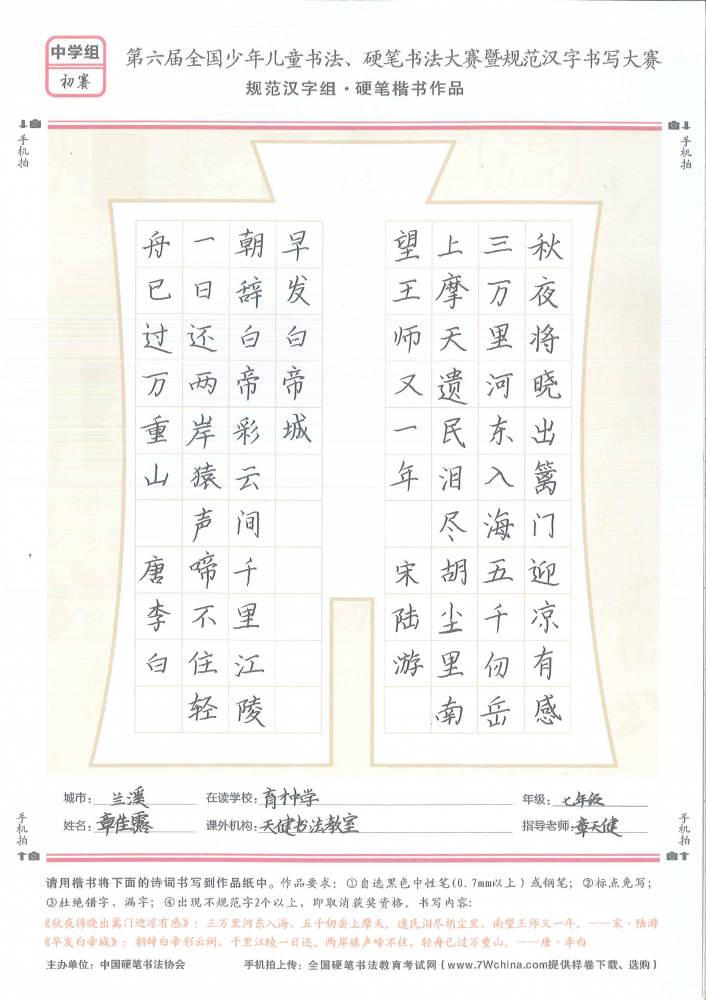 中学组
初赛
第六届全国少年儿童书法、硬笔书法大赛暨规范汉字书写大赛
规范汉字组·硬笔楷书作品
手机拍
手机拍
秋夜将晓出篱门迎凉有感
三万里河东入海五千仞岳
上摩天遗民泪尽胡尘里南
望王师又一年 宋陆游
早发白帝城
朝辞白帝彩云间千里江陵
一日还两岸猿声啼不住轻
舟已过万重山 唐李白
城市：兰溪 在读学校：育才中学 年级：七年级
姓名：章佳露 课外机构：天健书法教室 指导老师：章天健
手机拍
手机拍
请用楷书将下面的诗词书写到作品纸中。作品要求：①自选黑色中性笔(0.7mm以上)或钢笔；②标点免写；
③杜绝错字、漏字；④出现不规范字2个以上，即取消获奖资格。书写内容：
《秋夜将晓出篱门迎凉有感》：三万里河东入海，五千仞岳上摩天。遗民泪尽胡尘里，南望王师又一年。——宋·陆游
《早发白帝城》：朝辞白帝彩云间，千里江陵一日还。两岸猿声啼不住，轻舟已过万重山。——唐·李白
主办单位：中国硬笔书法协会 手机拍上传：全国硬笔书法教育考试网（www.7Wchina.com提供样卷下载、选购）